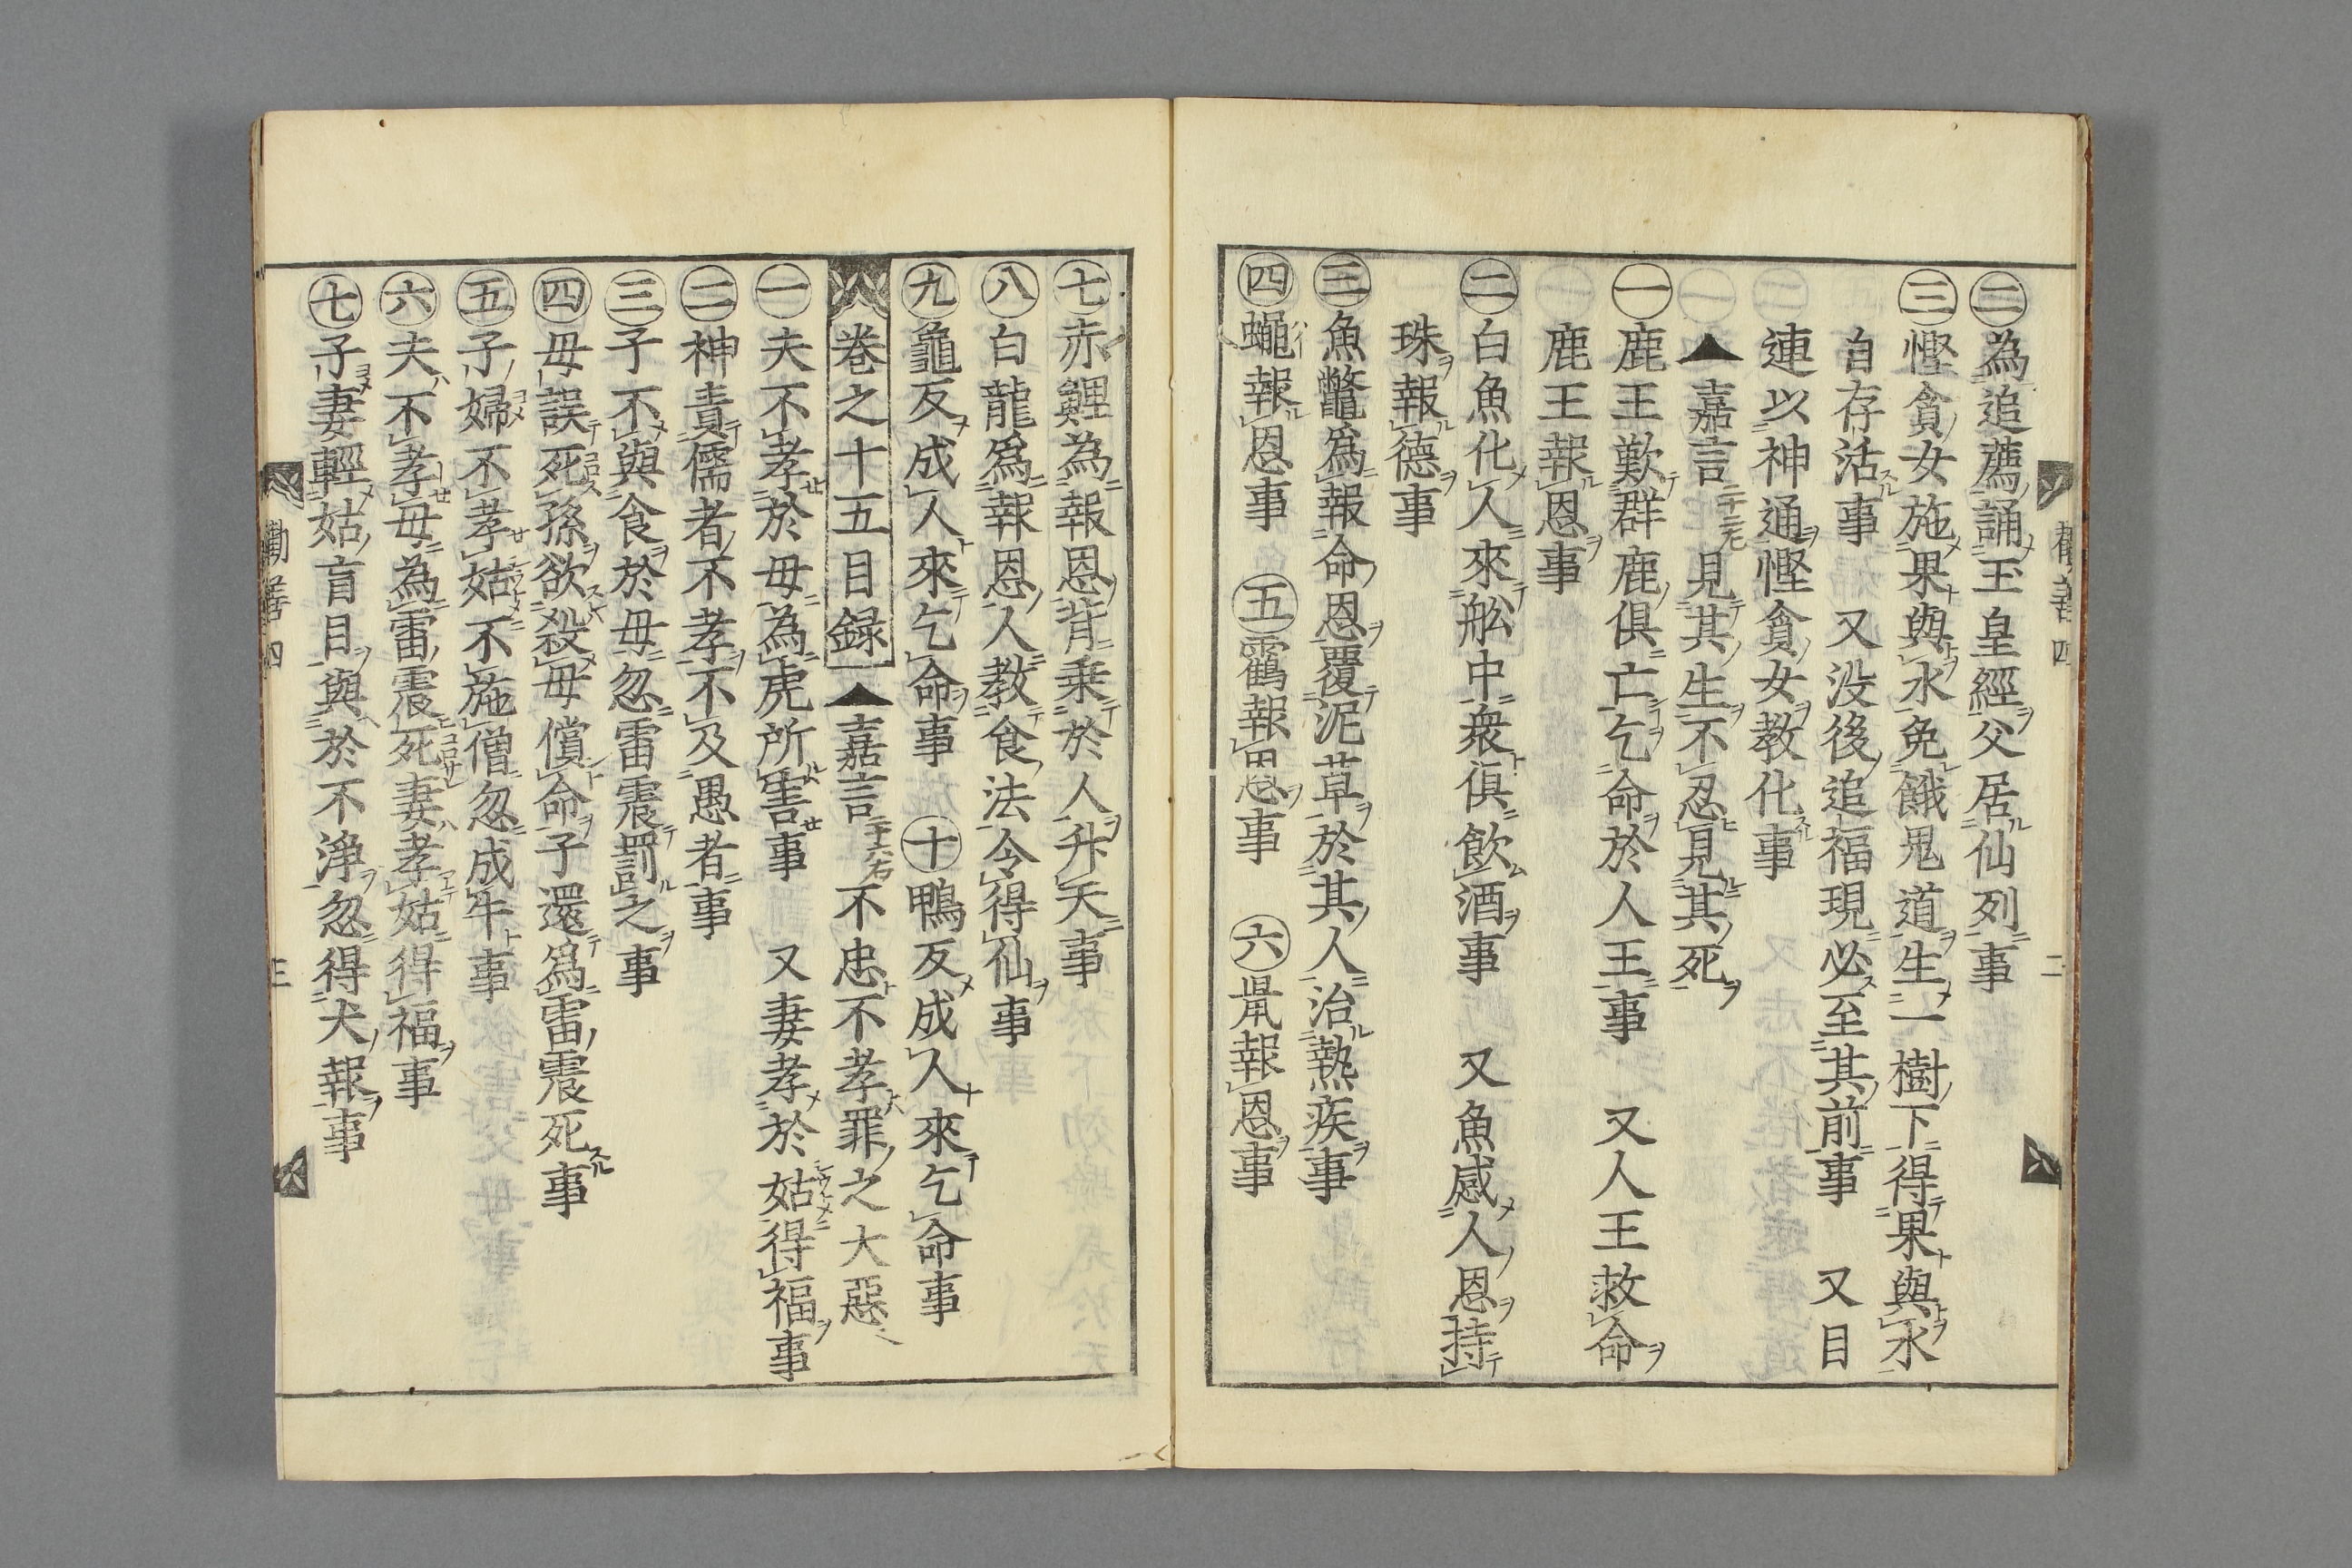 ㊁為追薦誦玉皇經父居仙列事
㊂慳貪女施果與水免餓鬼道生一樹下得果與水
自存活事 又没後追福現必至其前事 又目
連以神通慳貪女教化事
▲嘉言二十二左見其生不忍見其死
㊀鹿王歎群鹿倶亡乞命於人王事 又人王救命
鹿王報恩事
㊁白魚化人來舩中衆倶飲酒事 又魚感人恩持
珠報徳事
㊂魚鼈爲報命恩覆泥草於其人治熱疾事
㊃蠅報恩事 ㊄鸖報恩事 ㊅黿報恩事
㊆赤鯉為報恩背乗於人升天事
㊇白龍爲報恩人教食法令得仙事
㊈龜反成人來乞命事 ㊉鴨反成人來乞命事
巻之十五目録 ▲嘉言二十六右不忠不孝罪之大惡
㊀夫不孝於母為虎所害事 又妻孝於姑得福事
㊁神責儒者不孝不及愚者事
㊂子不與食於母忽雷震罰之事
㊃母誤死孫欲殺母償命子還爲雷震死事
㊄子婦不孝姑不施僧忽成牛事
㊅夫不孝母為雷震死妻孝姑得福事
㊆子妻輕姑盲目與於不浄忽得犬報事
勸善四 二
勸善四 三